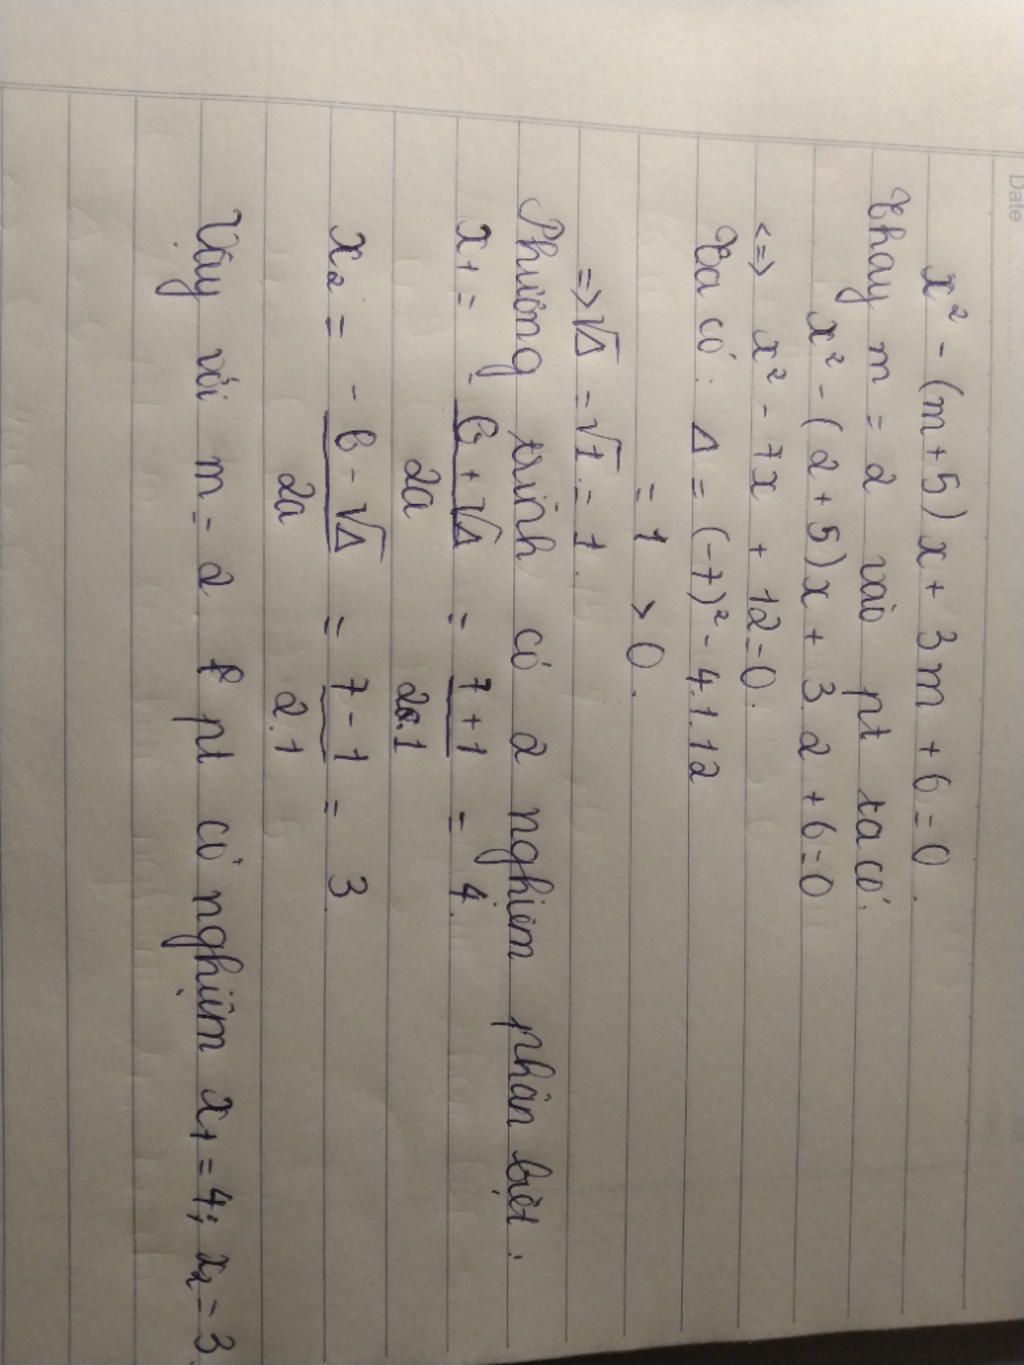 Date
x² - (m+5)x + 3m + 6 = 0.
Thay m = 2 vào pt ta có:
x² - (2+5)x + 3.2 + 6 = 0
<=> x² - 7x + 12 = 0.
Ta có: Δ = (-7)² - 4.1.12
= 1 > 0.
=> √Δ = √1 = 1.
Phương trình có 2 nghiệm phân biệt:
x₁ = (-b + √Δ)/2a = (7 + 1)/2.1 = 4.
x₂ = (-b - √Δ)/2a = (7 - 1)/2.1 = 3
Vậy với m = 2 pt có nghiệm x₁ = 4; x₂ = 3